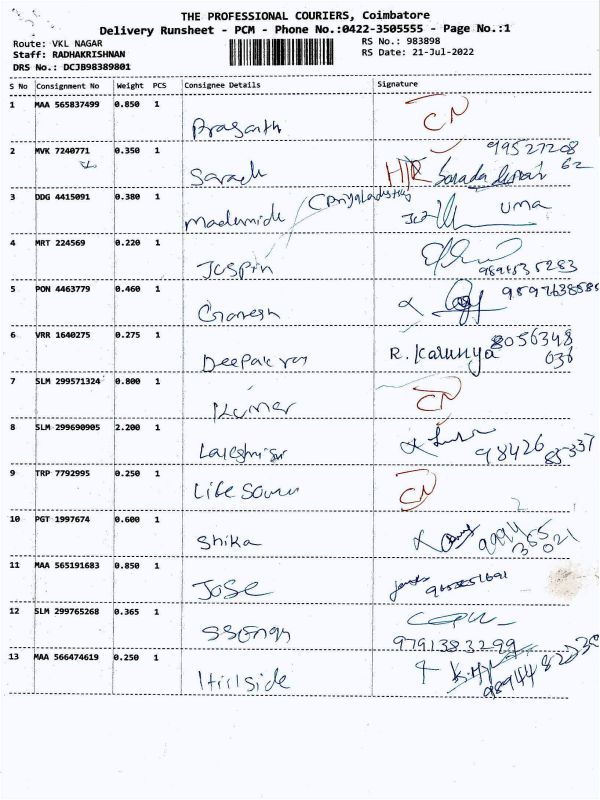 THE PROFESSIONAL COURIERS, Coimbatore
Delivery Runsheet - PCM - Phone No.:0422-3505555 - Page No.:1
Route: VKL NAGAR
RS No.: 983898
Staff: RADHAKRISHNAN
RS Date: 21-Jul-2022
DRS No.: DCJB98389801
S No Consignment No Weight PCS Consignee Details Signature
1 MAA 565837499 0.850 1 Prasanth CN
2 MVK 7240771 0.350 1 Sarada 99527208 62
3 DDG 4415091 0.380 1 UMA
4 MRT 224569 0.220 1 Jospin
5 PON 4463779 0.460 1 Ganesh
6 VRR 1640275 0.275 1 Deepak R. Karunya 8056348 036
7 SLM 299571324 0.800 1 Kumar CN
8 SLM 299690905 2.200 1 98426 85337
9 TRP 7792995 0.250 1 Life CN
10 PGT 1997674 0.600 1 Shika
11 MAA 565191683 0.850 1 Jose
12 SLM 299765268 0.365 1 9791383299
13 MAA 566474619 0.250 1 Hillside